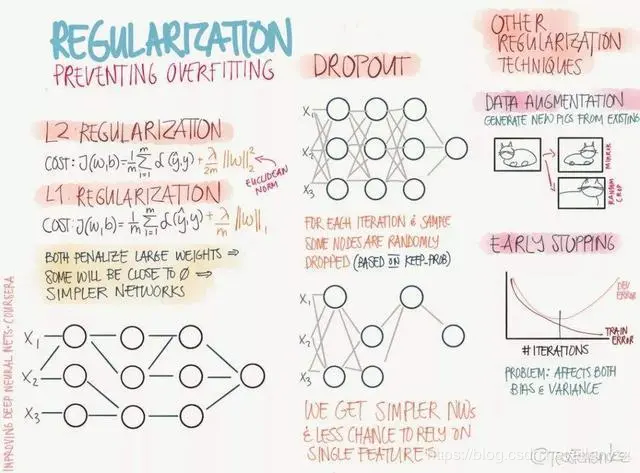 REGULARIZATION
PREVENTING OVERFITTING
L2 REGULARIZATION
COST: J(w,b)=1/m Σ_{i=1}^{m} L(ŷ,y)+λ/2m ||w||₂²
EUCLIDEAN
NORM
L1 REGULARIZATION
COST: J(w,b)=1/m Σ_{i=1}^{m} L(ŷ,y)+λ/m ||w||₁
BOTH PENALIZE LARGE WEIGHTS ⇒
SOME WILL BE CLOSE TO Ø ⇒
SIMPLER NETWORKS
X₁
X₂
X₃
IMPROVING DEEP NEURAL NETS · COURSERA
DROPOUT
X₁
X₂
X₃
FOR EACH ITERATION & SAMPLE
SOME NODES ARE RANDOMLY
DROPPED (BASED ON KEEP-PROB)
X₁
X₂
X₃
WE GET SIMPLER NWs
& LESS CHANCE TO RELY ON
SINGLE FEATURES
OTHER
REGULARIZATION
TECHNIQUES
DATA AUGMENTATION
GENERATE NEW PICS FROM EXISTING
MIRROR
RANDOM
CROP
EARLY STOPPING
DEV
ERROR
TRAIN
ERROR
# ITERATIONS
PROBLEM: AFFECTS BOTH
BIAS & VARIANCE